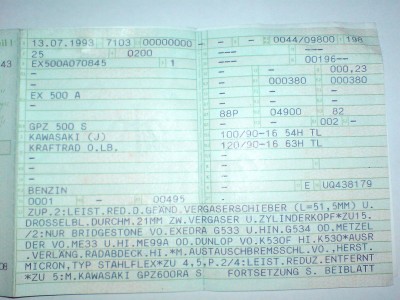 13.07.1993 7103 00000000
- - 0044/09800 196
25 0200
- 00196--
43 EX500A070845 1
- - 000,23
- 000380 000380
EX 500 A
88P 04900 82
- 002 -
GPZ 500 S
100/90-16 54H TL
KAWASAKI (J)
120/90-16 63H TL
KRAFTRAD O.LB.
BENZIN
E UQ438179
0001 - 00495
ZUP.2:LEIST.RED.D.GEÄND.VERGASERSCHIEBER (L=51,5MM) U.
DROSSELBL.DURCHM.21MM ZW.VERGASER U.ZYLINDERKOPF*ZU15.
/2:NUR BRIDGESTONE VO.EXEDRA G533 U.HIN,G534 OD.METZEL
DER VO.ME33 U.HI.ME99A OD.DUNLOP VO.K530F HI.K530*AUSR
.VERLÄNG.RADABDECK.HI.*M.AUSTAUSCHBREMSSCHL.VO.,HERST.
MICRON,TYP STAHLFLEX*ZU 4,5,P.2/4:LEIST.REDUZ.ENTFERNT
*ZU 5:M.KAWASAKI GPZ600RA S FORTSETZUNG S. BEIBLATT